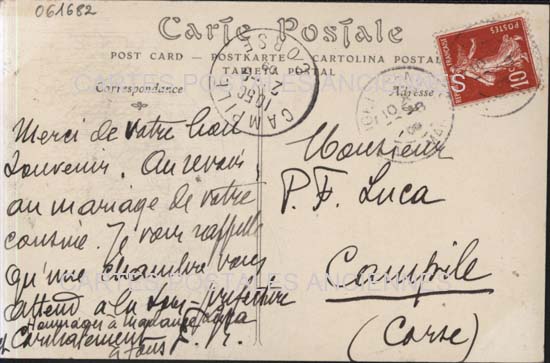 061682
Carte Postale
POST CARD — POSTKARTE — CARTOLINA POSTAL
TARJETA POSTAL
Correspondance
Adresse
CAMPILE
CORSE
POSTES
10
CARTES POSTALES ANCIENNES
Merci de votre bon
souvenir. Au revoir,
au mariage de votre
cousine. Je vous rappelle
qu'une chambre vous
attend à la sous-préfecture
hommages à Madame
Cordialement
à tous
Monsieur
P. F. Luca
Campile
(Corse)
CARTES POSTALES ANCIENNES